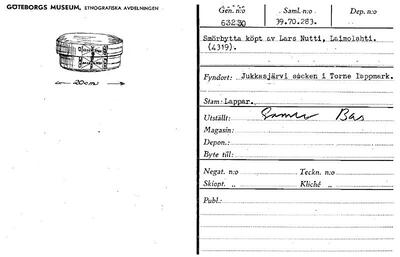 GÖTEBORGS MUSEUM, ETNOGRAFISKA AVDELNINGEN
← 20 cm →
Gen. n:o Saml. n:o Dep. n:o
63230 39.70.283.
Smörbytta köpt av Lars Nutti, Laimolahti.
(4319).
Fyndort: Jukkasjärvi socken i Torne lappmark.
Stam: Lappar.
Utställt: Samer Bas
Magasin:
Depon.:
Byte till:
Negat. n:o Teckn. n:o
Skiopt. „ Kliché „
Publ.: